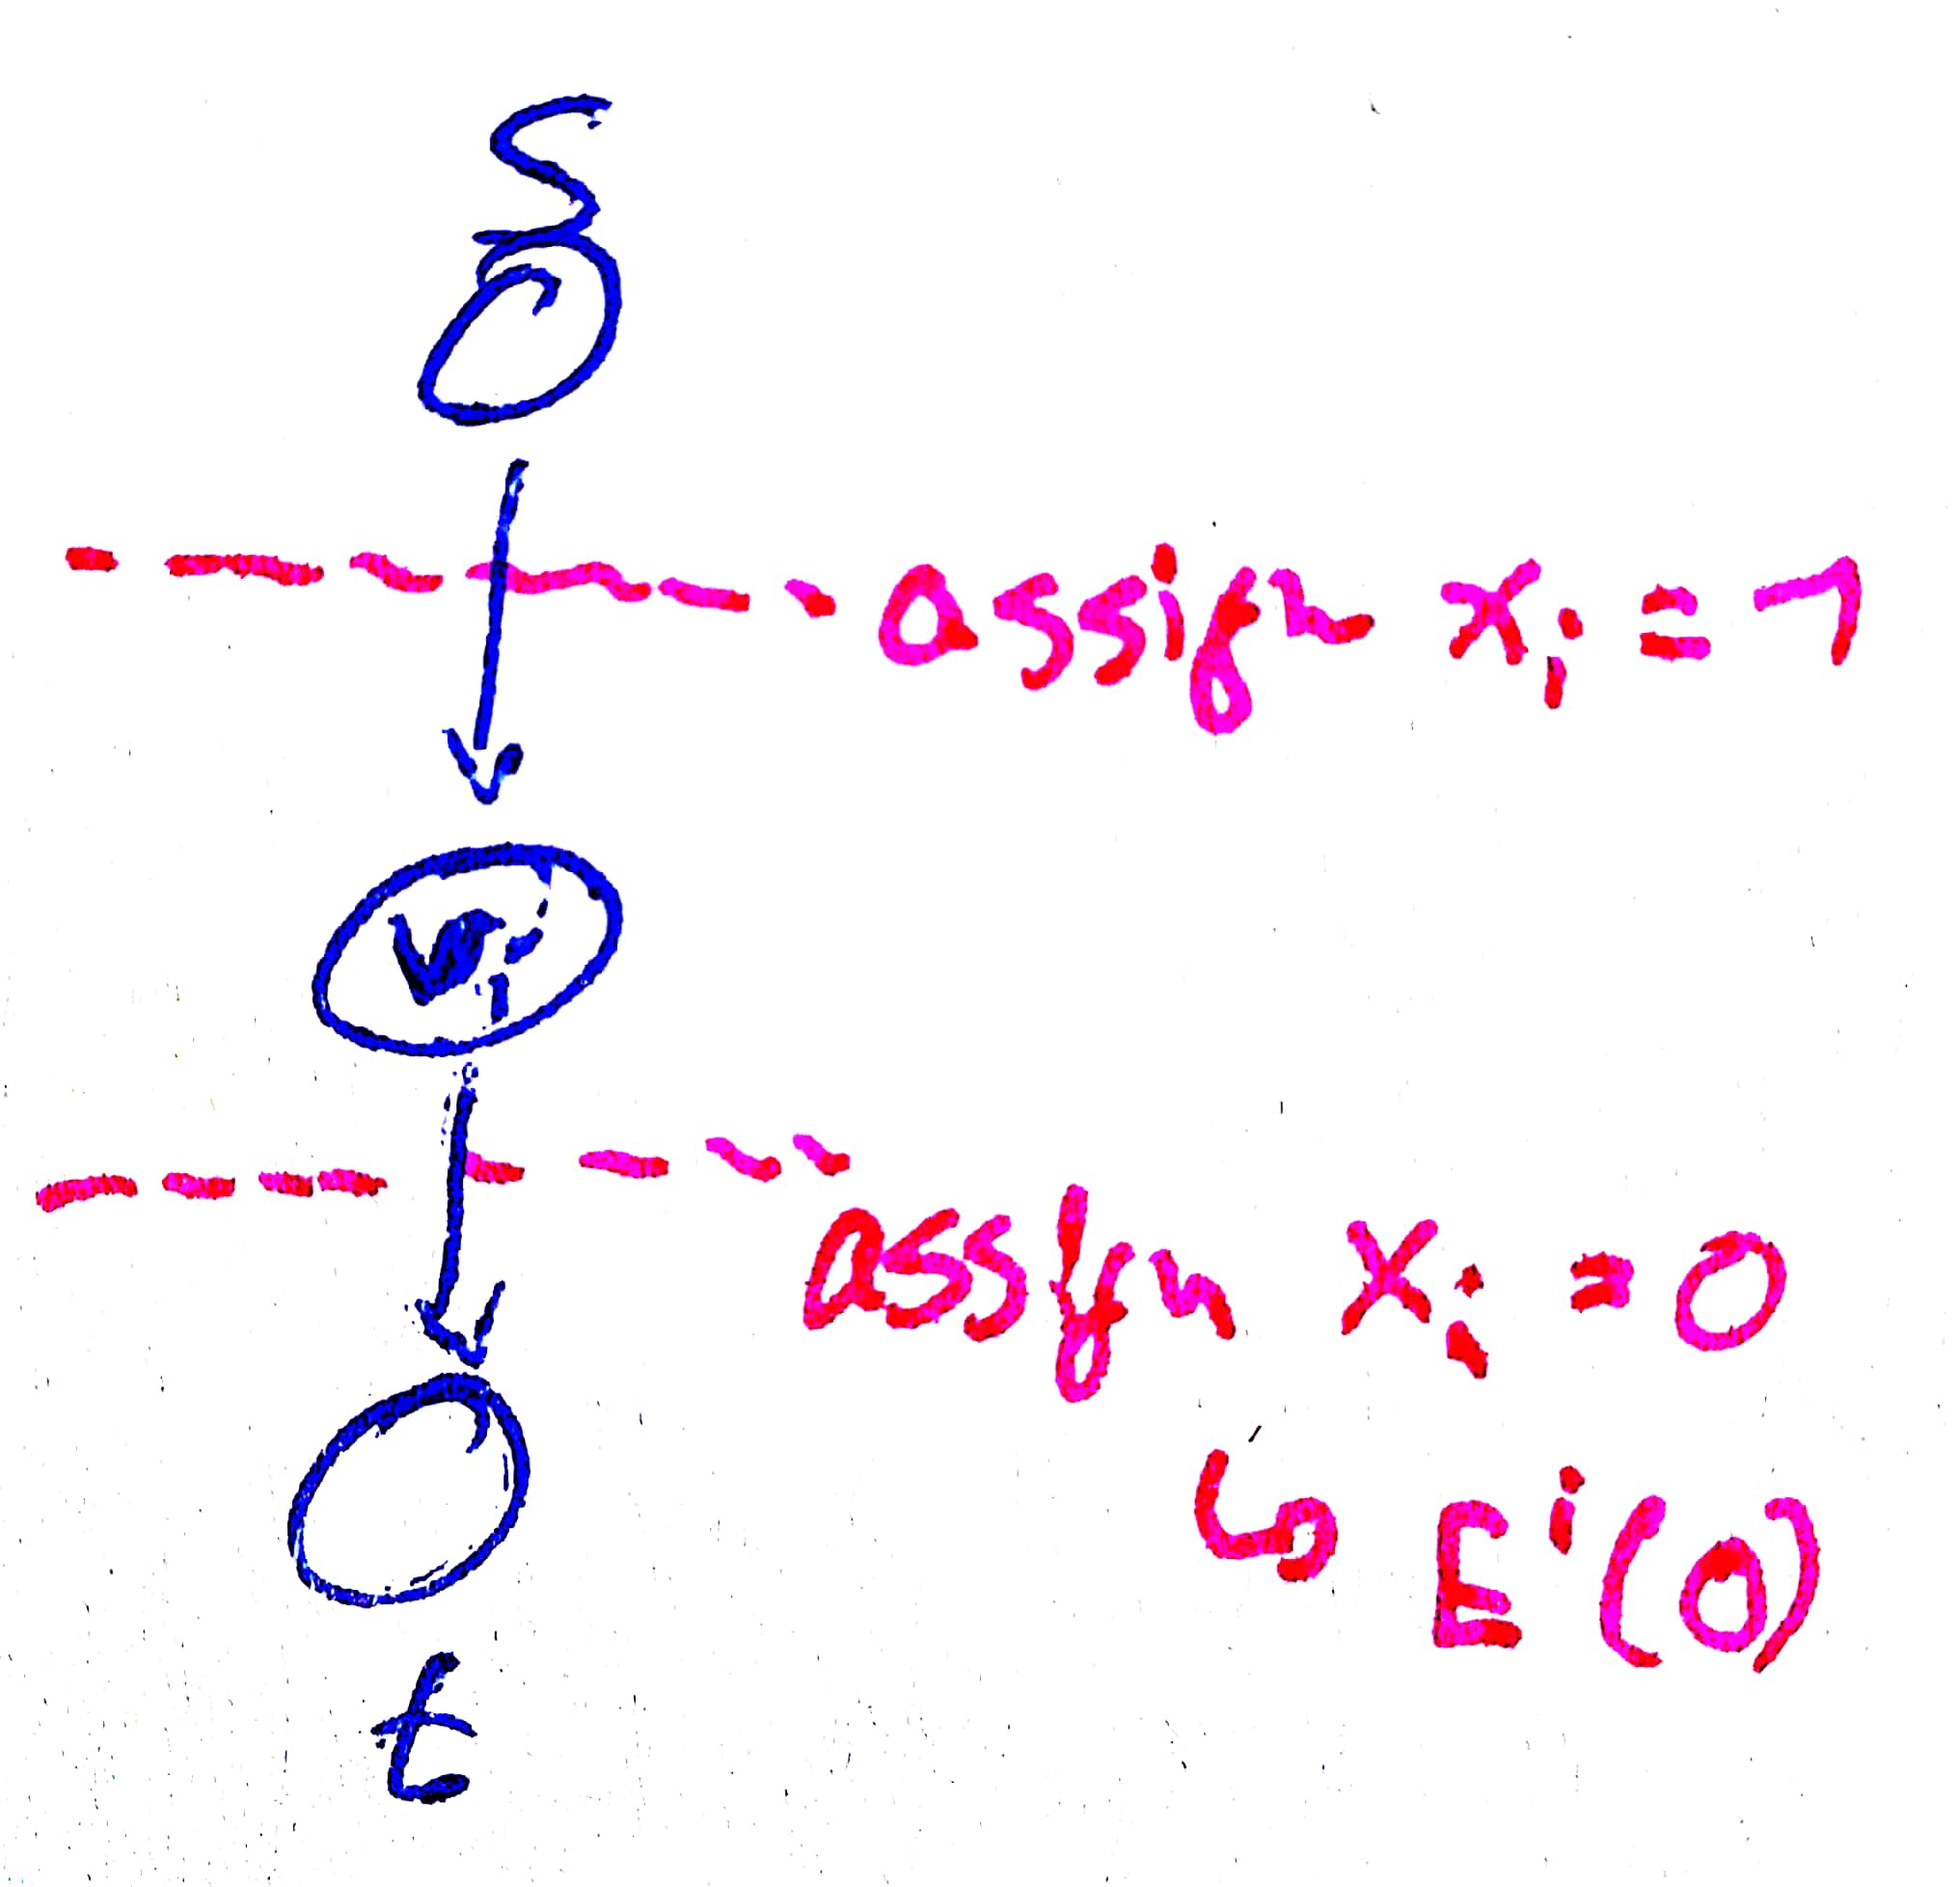 S
assign xi = 1
vi
assign xi = 0
↳ E^i(0)
t